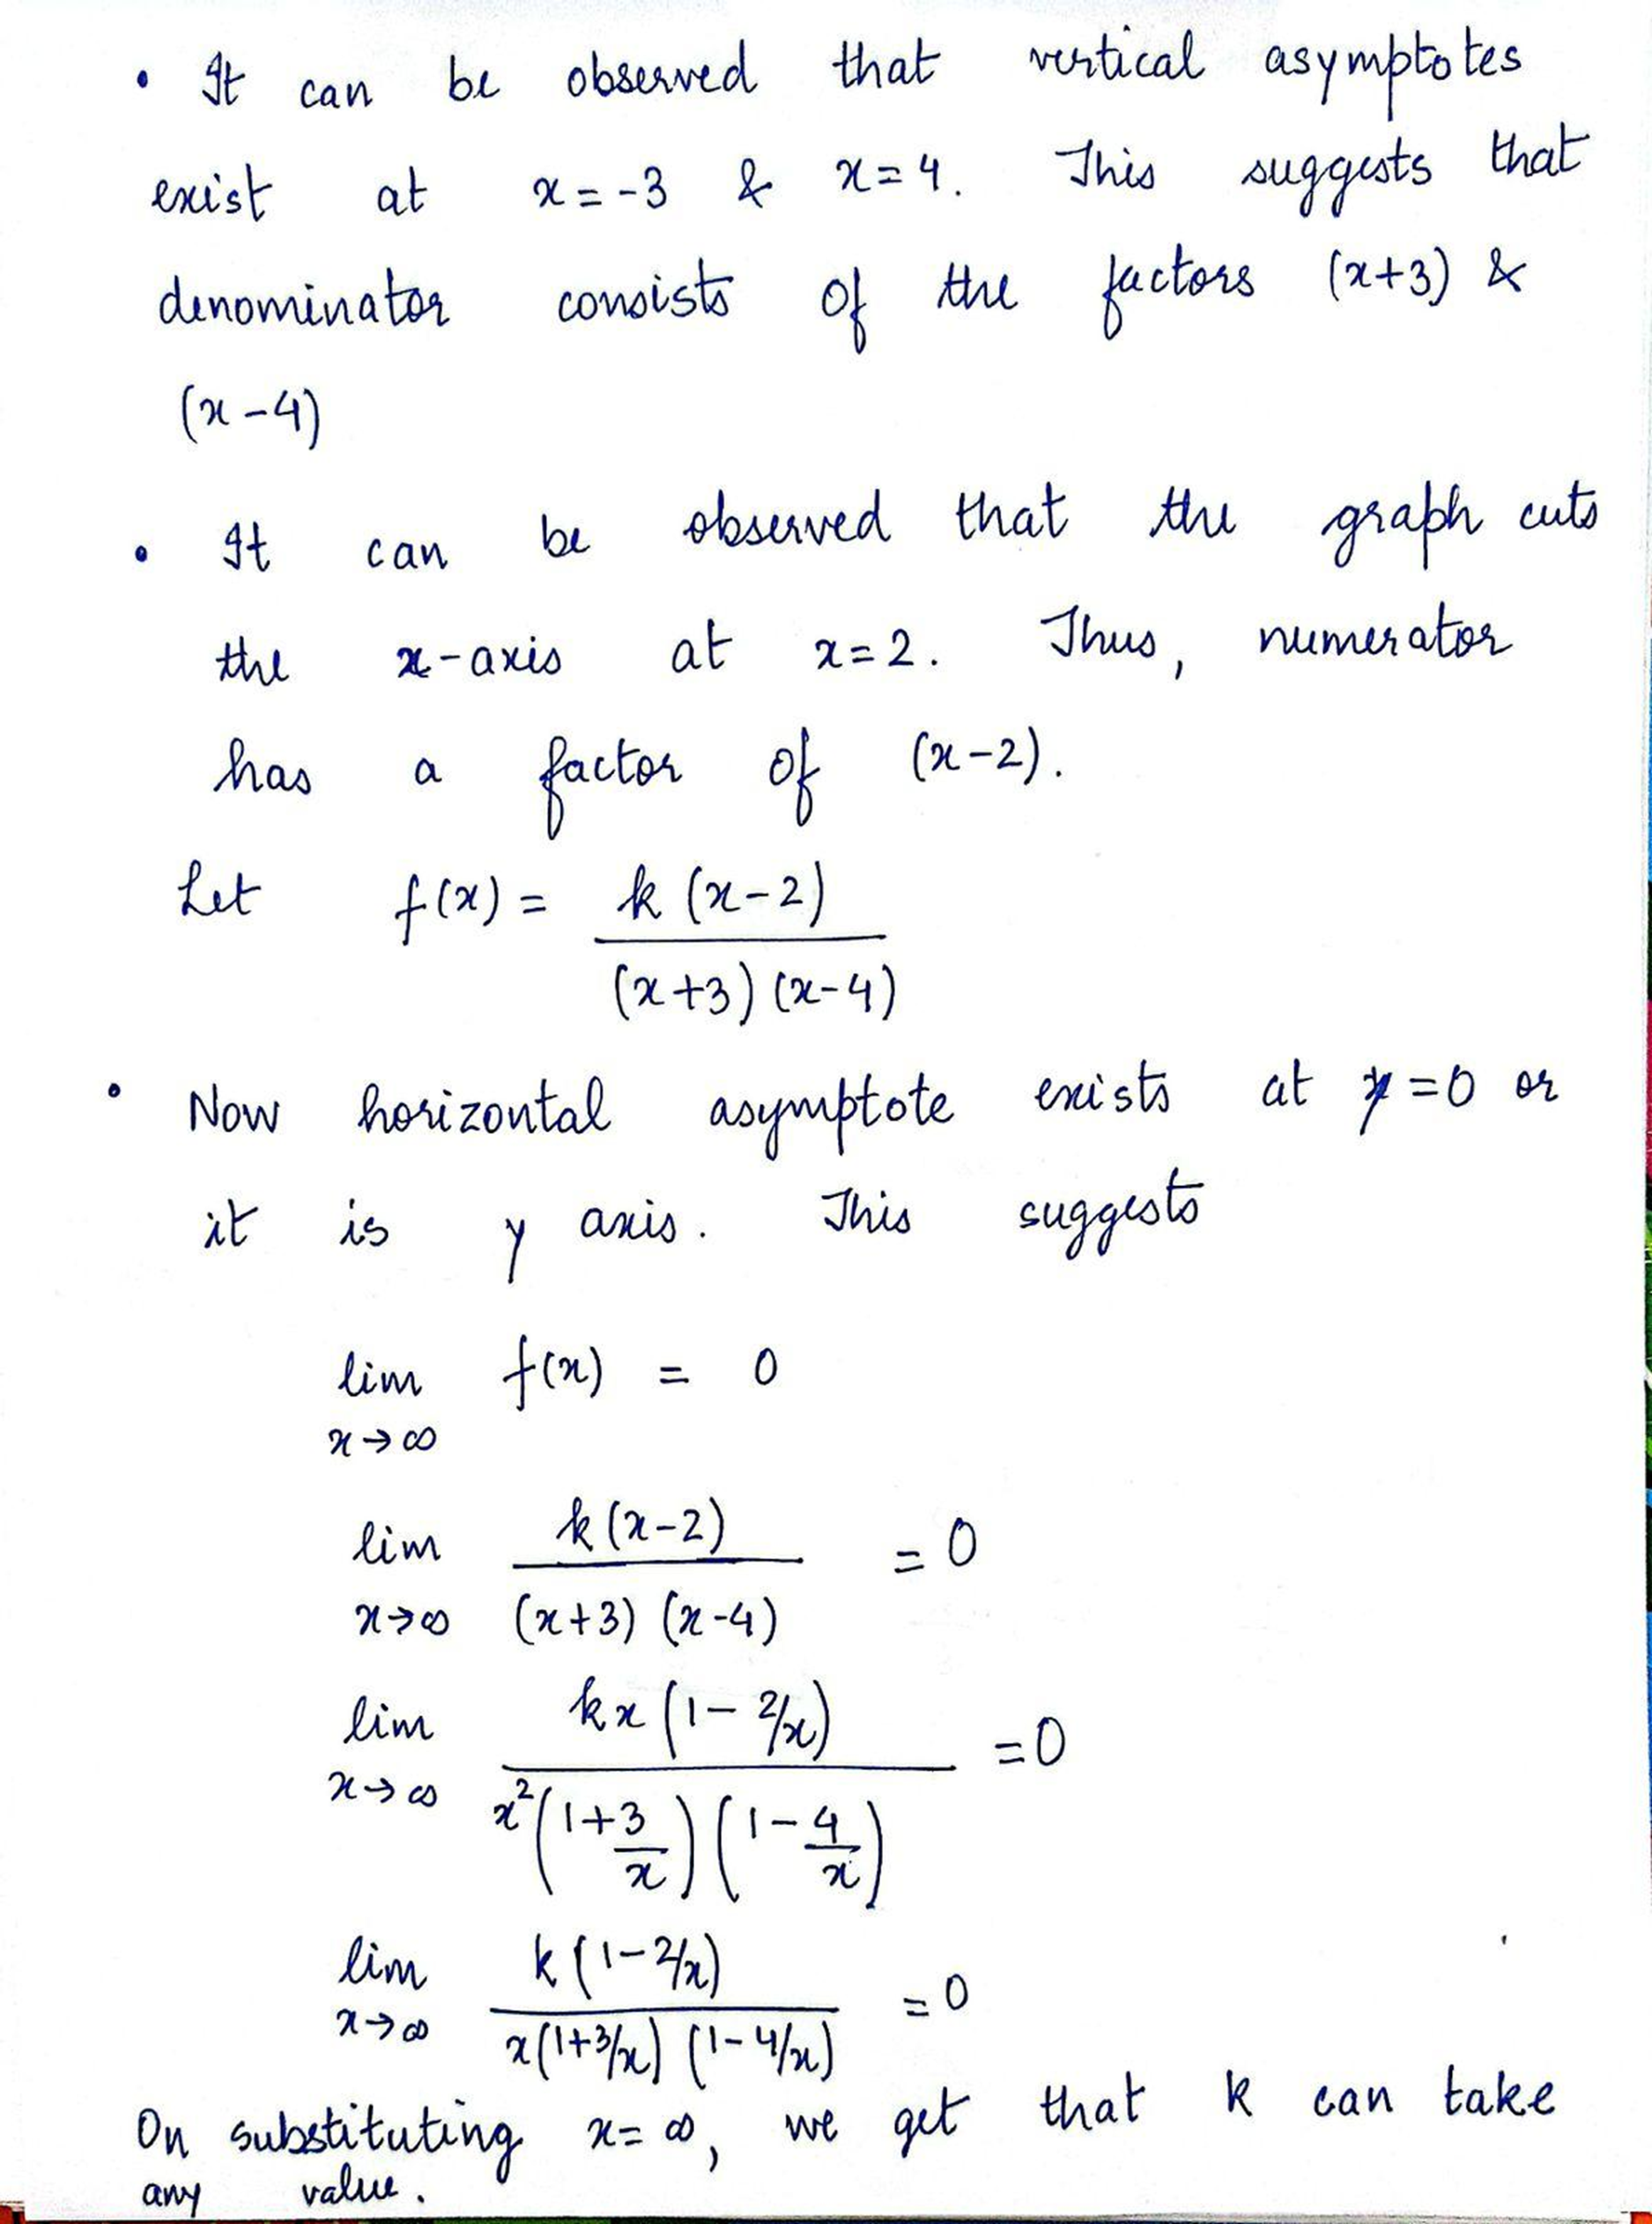 • It can be observed that vertical asymptotes
exist at x = -3 & x = 4. This suggests that
denominator consists of the factors (x+3) &
(x-4)
• It can be observed that the graph cuts
the x-axis at x = 2. Thus, numerator
has a factor of (x-2).
Let f(x) = k (x-2)
(x+3) (x-4)
• Now horizontal asymptote exists at y = 0 or
it is y axis. This suggests
lim f(x) = 0
x→∞
lim k(x-2) = 0
x→∞ (x+3) (x-4)
lim kx (1 - 2/x) = 0
x→∞ x²(1 + 3/x) (1 - 4/x)
lim k(1 - 2/x) = 0
x→∞ x(1+3/x) (1 - 4/x)
On substituting x = ∞, we get that k can take
any value.